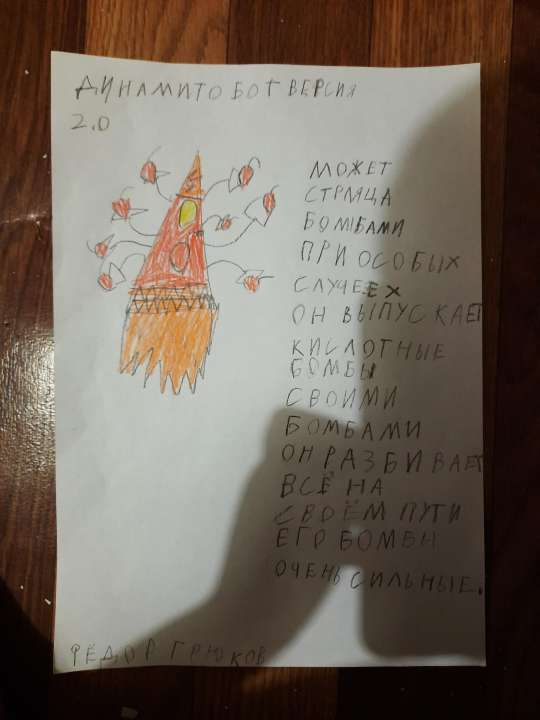 ДИНАМИТОБОТ ВЕРСИЯ
2.0
МОЖЕТ
СТРЛЯЦА
БОМБАМИ
ПРИ ОСОБЫХ
СЛУЧЕЕХ
ОН ВЫПУСКАЕТ
КИСЛОТНЫЕ
БОМБЫ
СВОИМИ
БОМБАМИ
ОН РАЗБИВАЕТ
ВСЁ НА
СВОЁМ ПУТИ
ЕГО БОМБЫ
ОЧЕНЬ СИЛЬНЫЕ.
ФЁДОР ГРЮКОВ